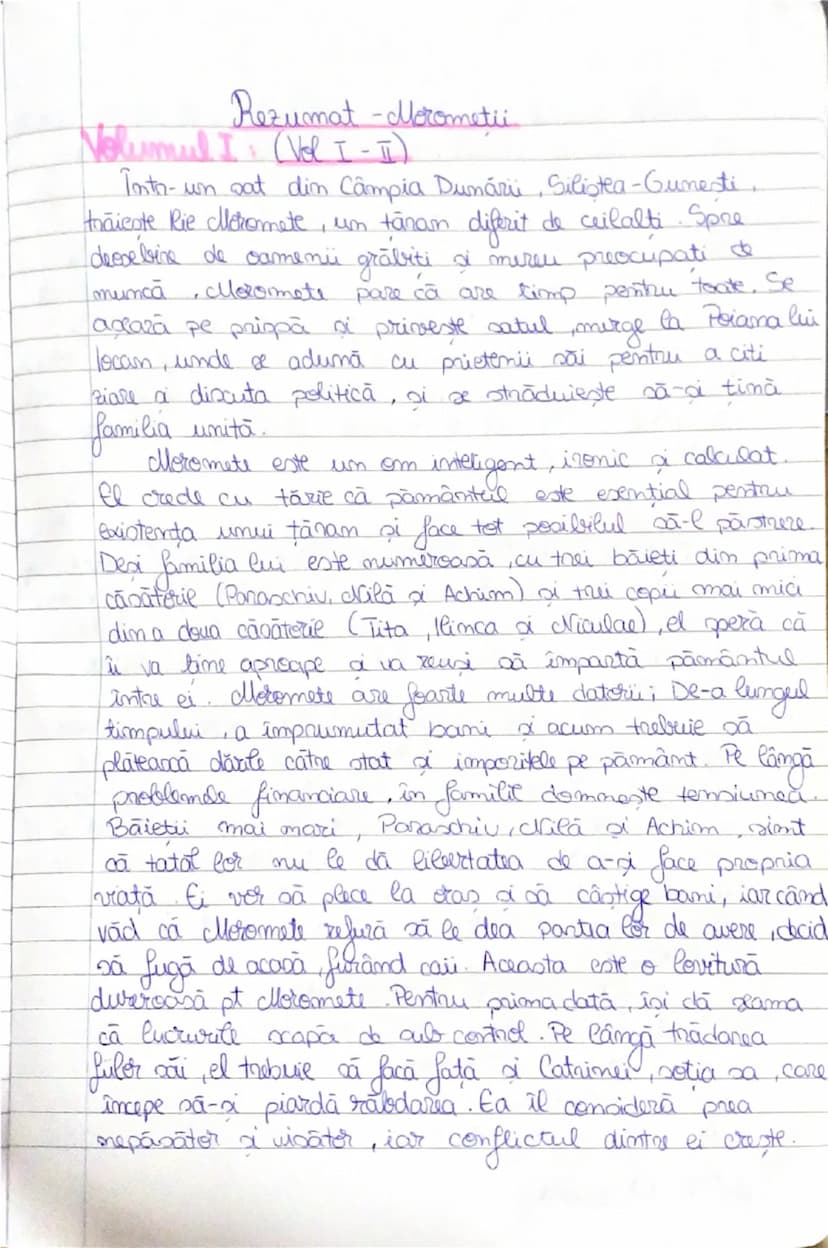 Rezumat - Moromeții
Volumul I : (Vol I - II)
Într-un sat din Câmpia Dunării, Siliștea-Gumești,
trăiește Ilie Moromete, un țăran diferit de ceilalți. Spre
deosebire de oamenii grăbiți și mereu preocupați de
muncă, Moromete pare că are timp pentru toate. Se
așază pe prispă și privește satul, merge la Poiana lui
Iocan, unde se adună cu prietenii săi pentru a citi
ziare și discuta politică, și se străduiește să-și țină
familia unită.
Moromete este un om inteligent, ironic și calculat.
El crede cu tărie că pământul este esențial pentru
existența unui țăran și face tot posibilul să-l păstreze.
Deși familia lui este numeroasă, cu trei băieți din prima
căsătorie (Paraschiv, Nilă și Achim) și trei copii mai mici
din a doua căsătorie (Tita, Ilinca și Niculae), el speră că
îi va ține aproape și va reuși să împartă pământul
între ei. Moromete are foarte multe datorii; De-a lungul
timpului, a împrumutat bani și acum trebuie să
plătească dările către stat și impozitele pe pământ. Pe lângă
problemele financiare, în familie domnește tensiunea.
Băieții mai mari, Paraschiv, Nilă și Achim, simt
că tatăl lor nu le dă libertatea de a-și face propria
viață. Ei vor să plece la oraș și să câștige bani, iar când
văd că Moromete refuză să le dea partea lor de avere, decid
să fugă de acasă, furând caii. Aceasta este o lovitură
dureroasă pt Moromete. Pentru prima dată, își dă seama
că lucrurile scapă de sub control. Pe lângă trădarea
fiilor săi, el trebuie să facă față și Catrinei, soția sa, care
începe să-și piardă răbdarea. Ea îl consideră prea
nepăsător și visător, iar conflictul dintre ei crește.